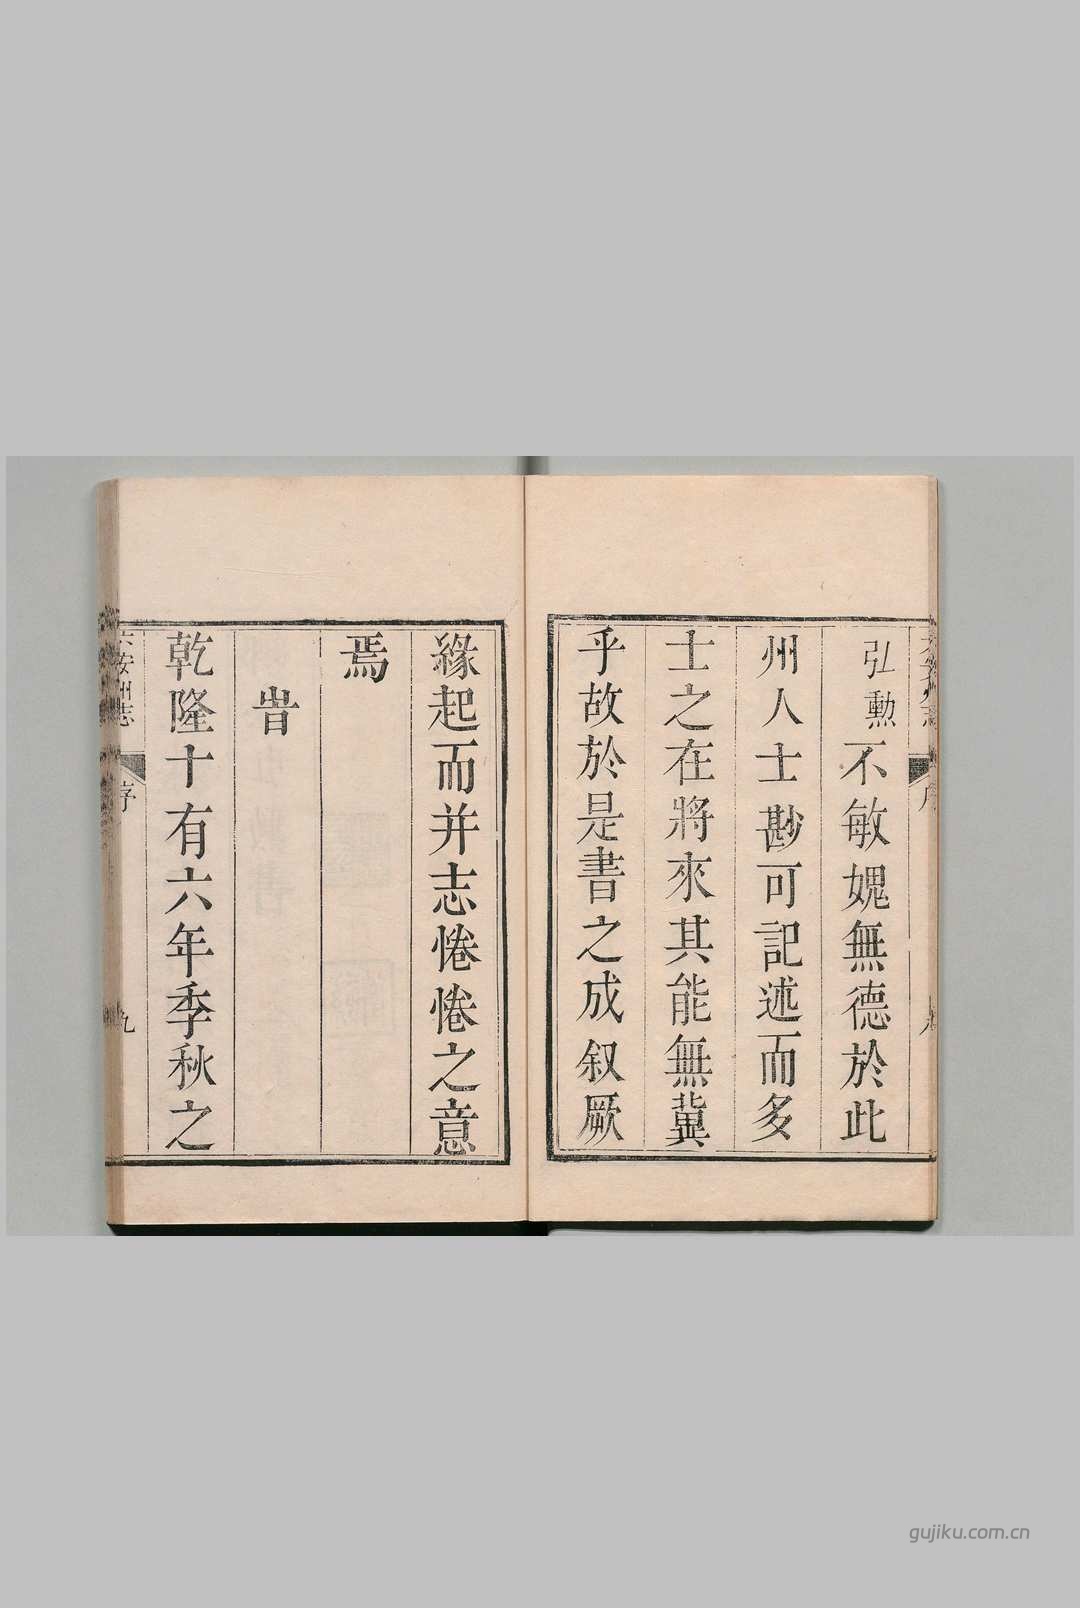 弘勲不敏媿無德於此
州人士尠可記述而多
士之在將來其能無冀
乎故於是書之成叙厥
緣起而并志惓惓之意
焉
旹
乾隆十有六年季秋之
六安州志
序
九
gujiku.com.cn